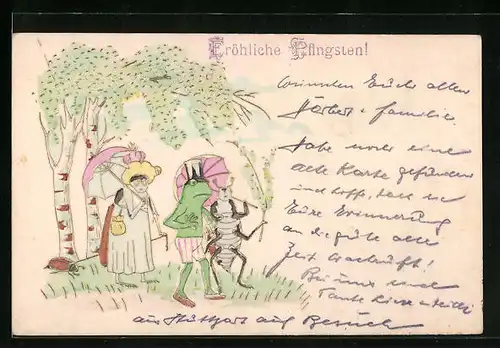 Fröhliche Pfingsten!
wünschen Euch allen
Herbert & Familie.
Habe noch eine
alte Karte gefunden
und hoffe, dass sie
Eure Erinnerung
an die gute alte
Zeit
Bei uns sind
Tante
aus Stuttgart auf Besuch